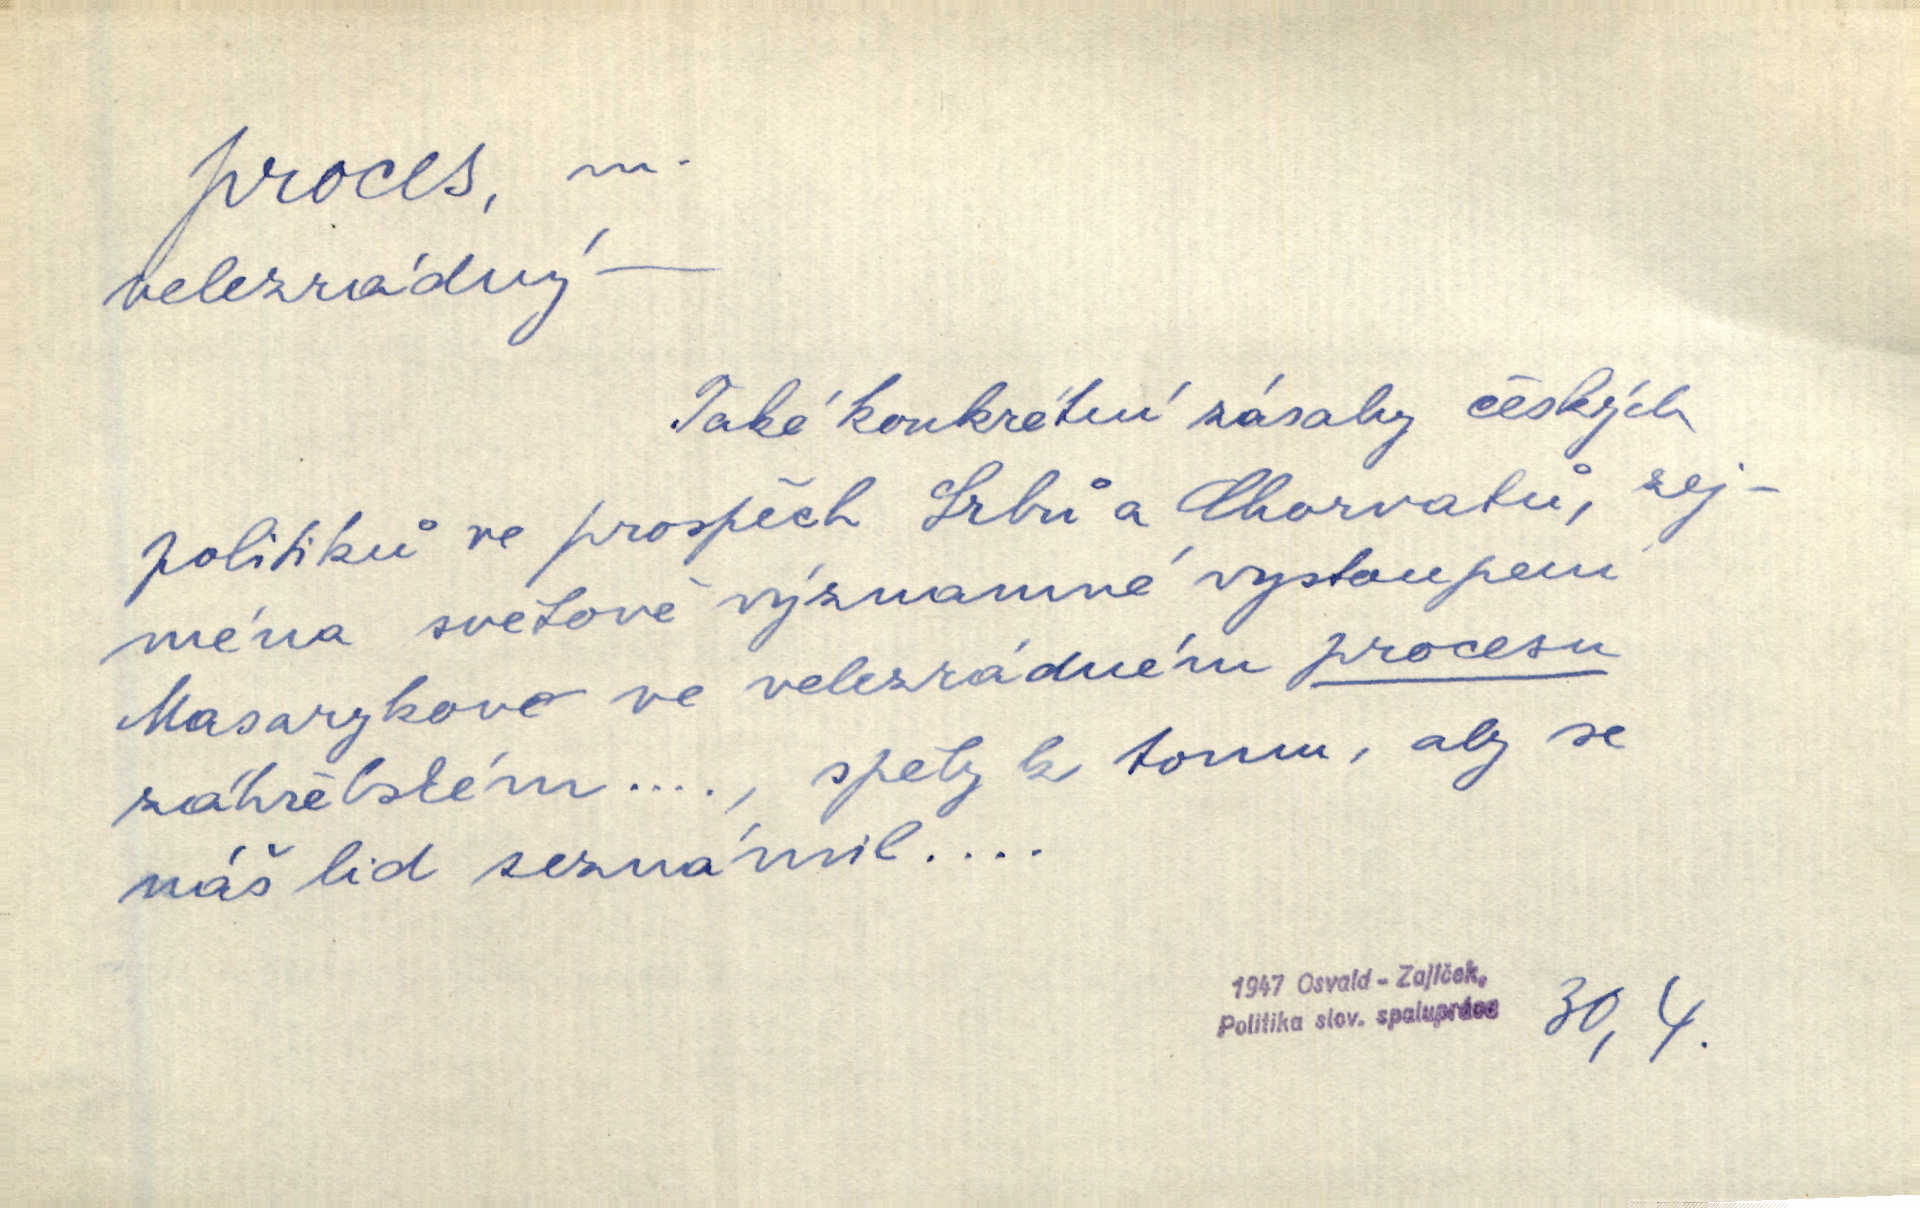 proces, m.
velezrádný —
Také konkrétní zásahy českých
politiků ve prospěch Srbů a Chorvatů, zej-
ména světově významné vystoupení
Masarykovo ve velezrádném procesu
záhřebském...., spěly k tomu, aby se
náš lid seznámil....
1947 Osvald - Zajíček,
Politika slov. spolupráce 30, 4.